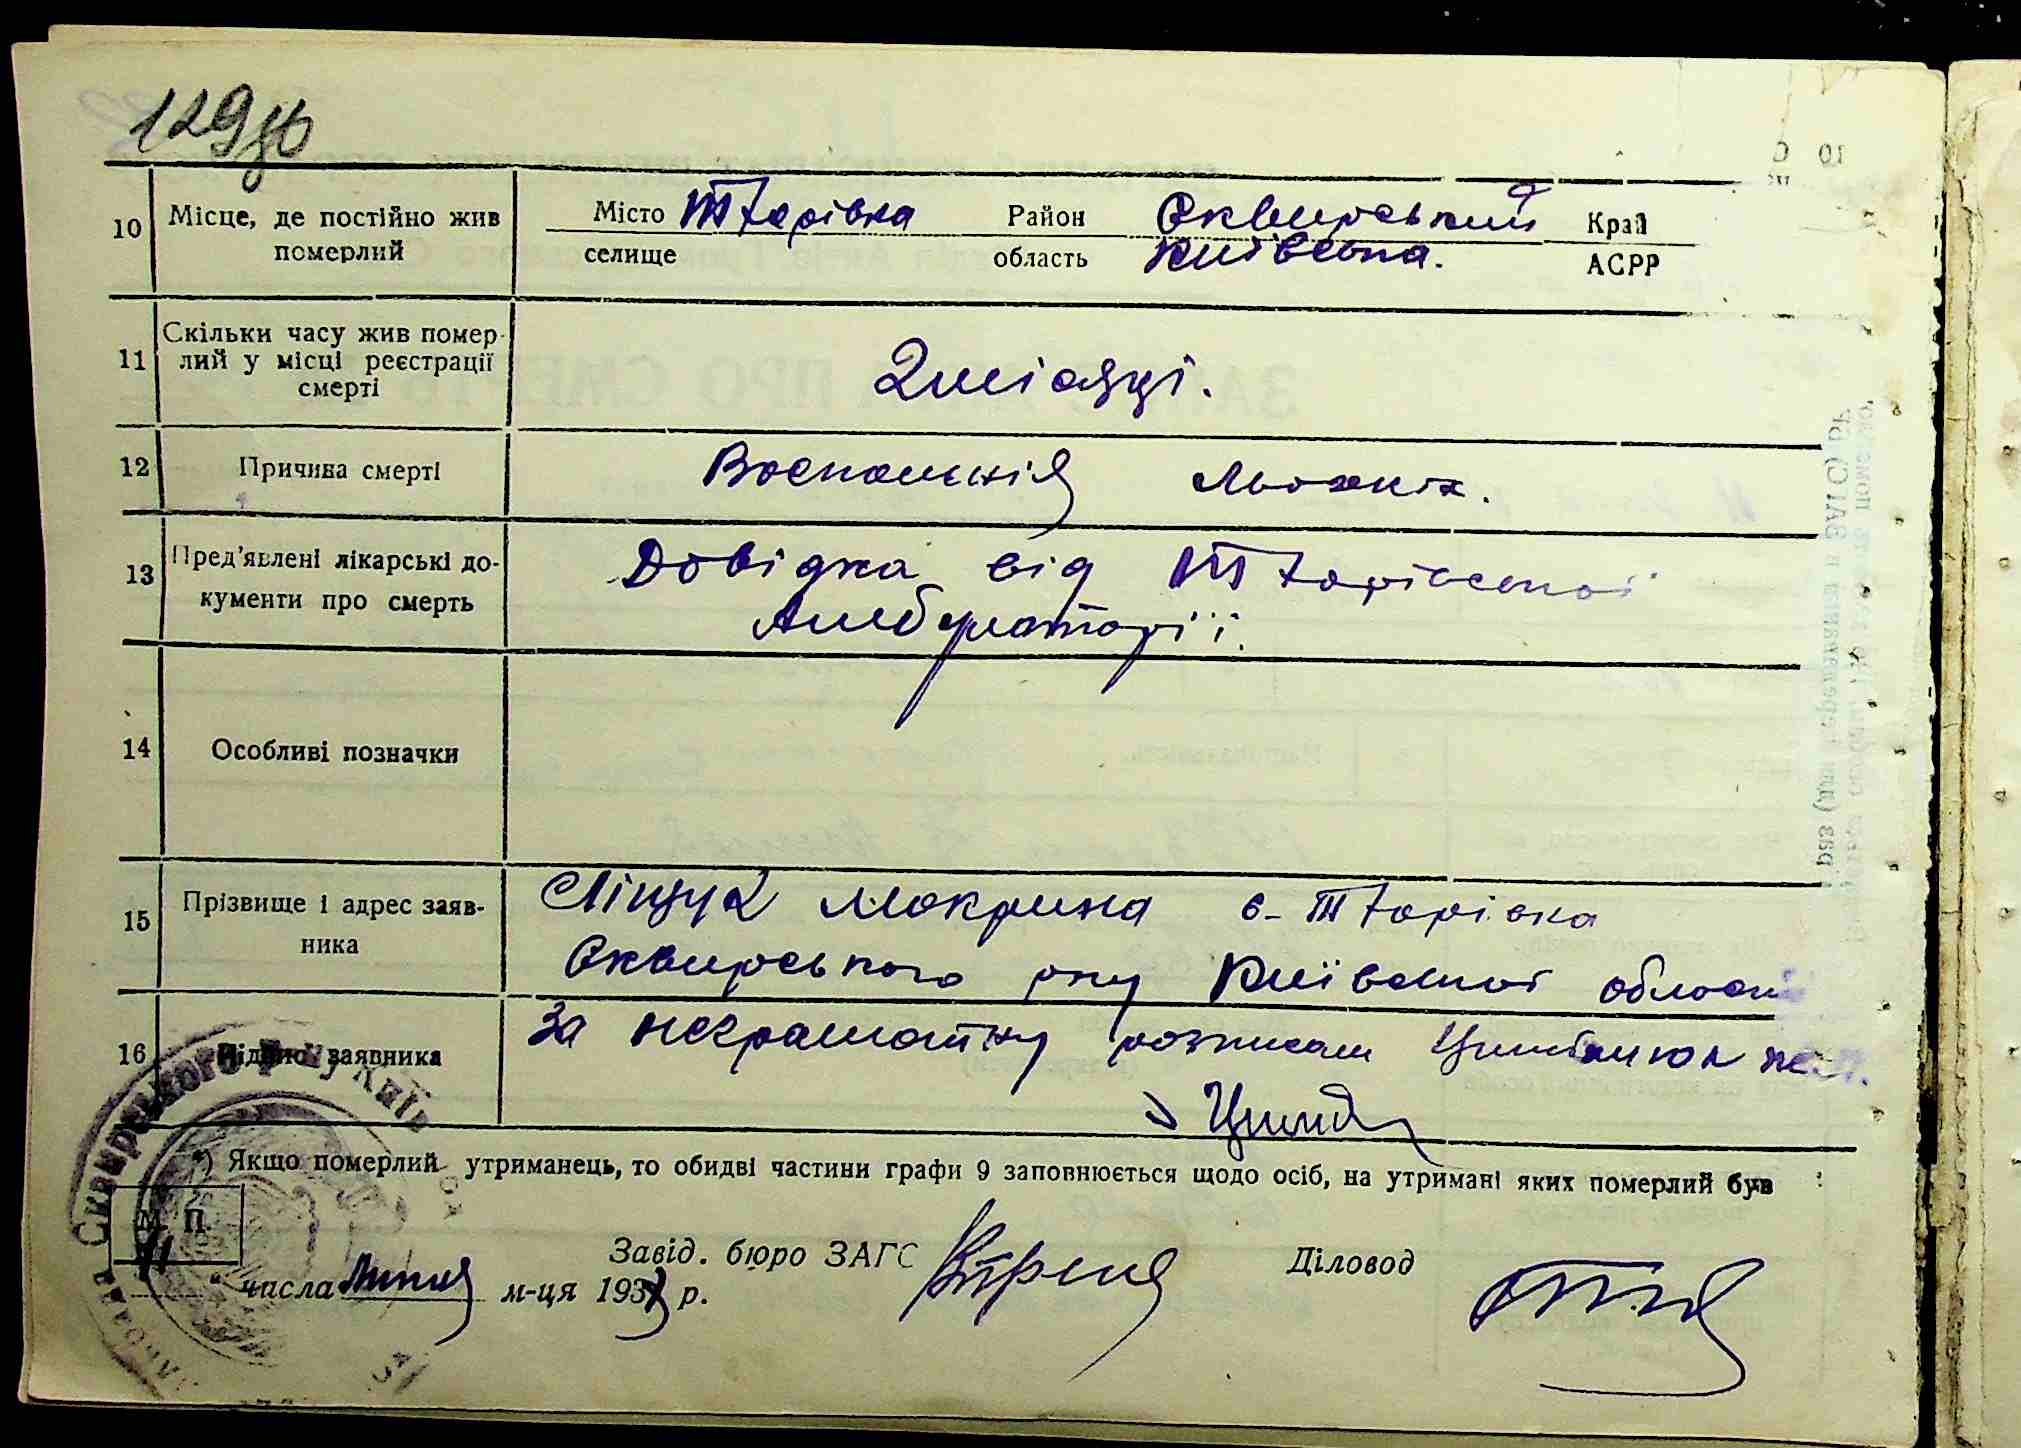 129зв
10 Місце, де постійно жив померлий Місто Тхорівка Район Сквирський Край
селище область Київська. АСРР
11 Скільки часу жив помер-
лий у місці реєстрації
смерті 2 місяці.
12 Причина смерті Воспаленія Льохких.
13 Пред'явлені лікарські до-
кументи про смерть Довідка від Тхорівської
Амбулаторії.
14 Особливі позначки
15 Прізвище і адрес заяв-
ника Ліщук Мокрина с. Тхорівка
Сквирського р-ну Київської області
16 Підпис заявника За неграмотну розписал Цимбалюк
*) Якщо померлий утриманець, то обидві частини графи 9 заповнюється щодо осіб, на утримані яких померлий був
М. П.
Завід. бюро ЗАГС Діловод
11 " числа Липня м-ця 193 р.
Сквирського р-ну Київ